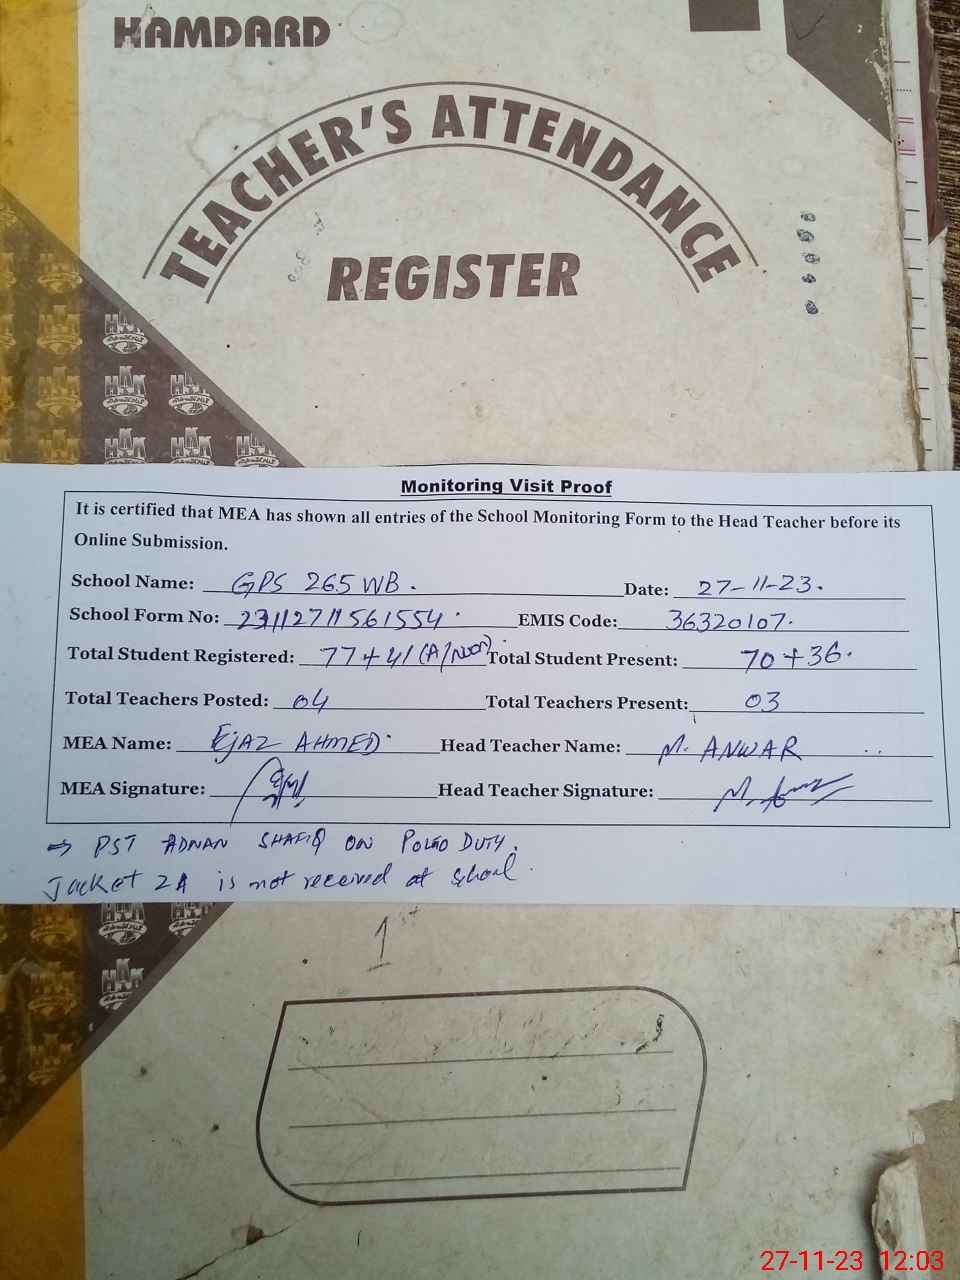 HAMDARD
TEACHER'S ATTENDANCE
REGISTER
Monitoring Visit Proof
It is certified that MEA has shown all entries of the School Monitoring Form to the Head Teacher before its
Online Submission.
School Name: GPS 265 WB. Date: 27-11-23.
School Form No: 23112711561554. EMIS Code: 36320107.
Total Student Registered: 77+41 (A/Noon). Total Student Present: 70+36.
Total Teachers Posted: 04 Total Teachers Present: 03
MEA Name: EJAZ AHMED Head Teacher Name: M. ANWAR
MEA Signature: Head Teacher Signature:
→ PST ADNAN SHAFIQ ON POLIO DUTY.
Jacket 2A is not received at school.
1st
27-11-23 12:03